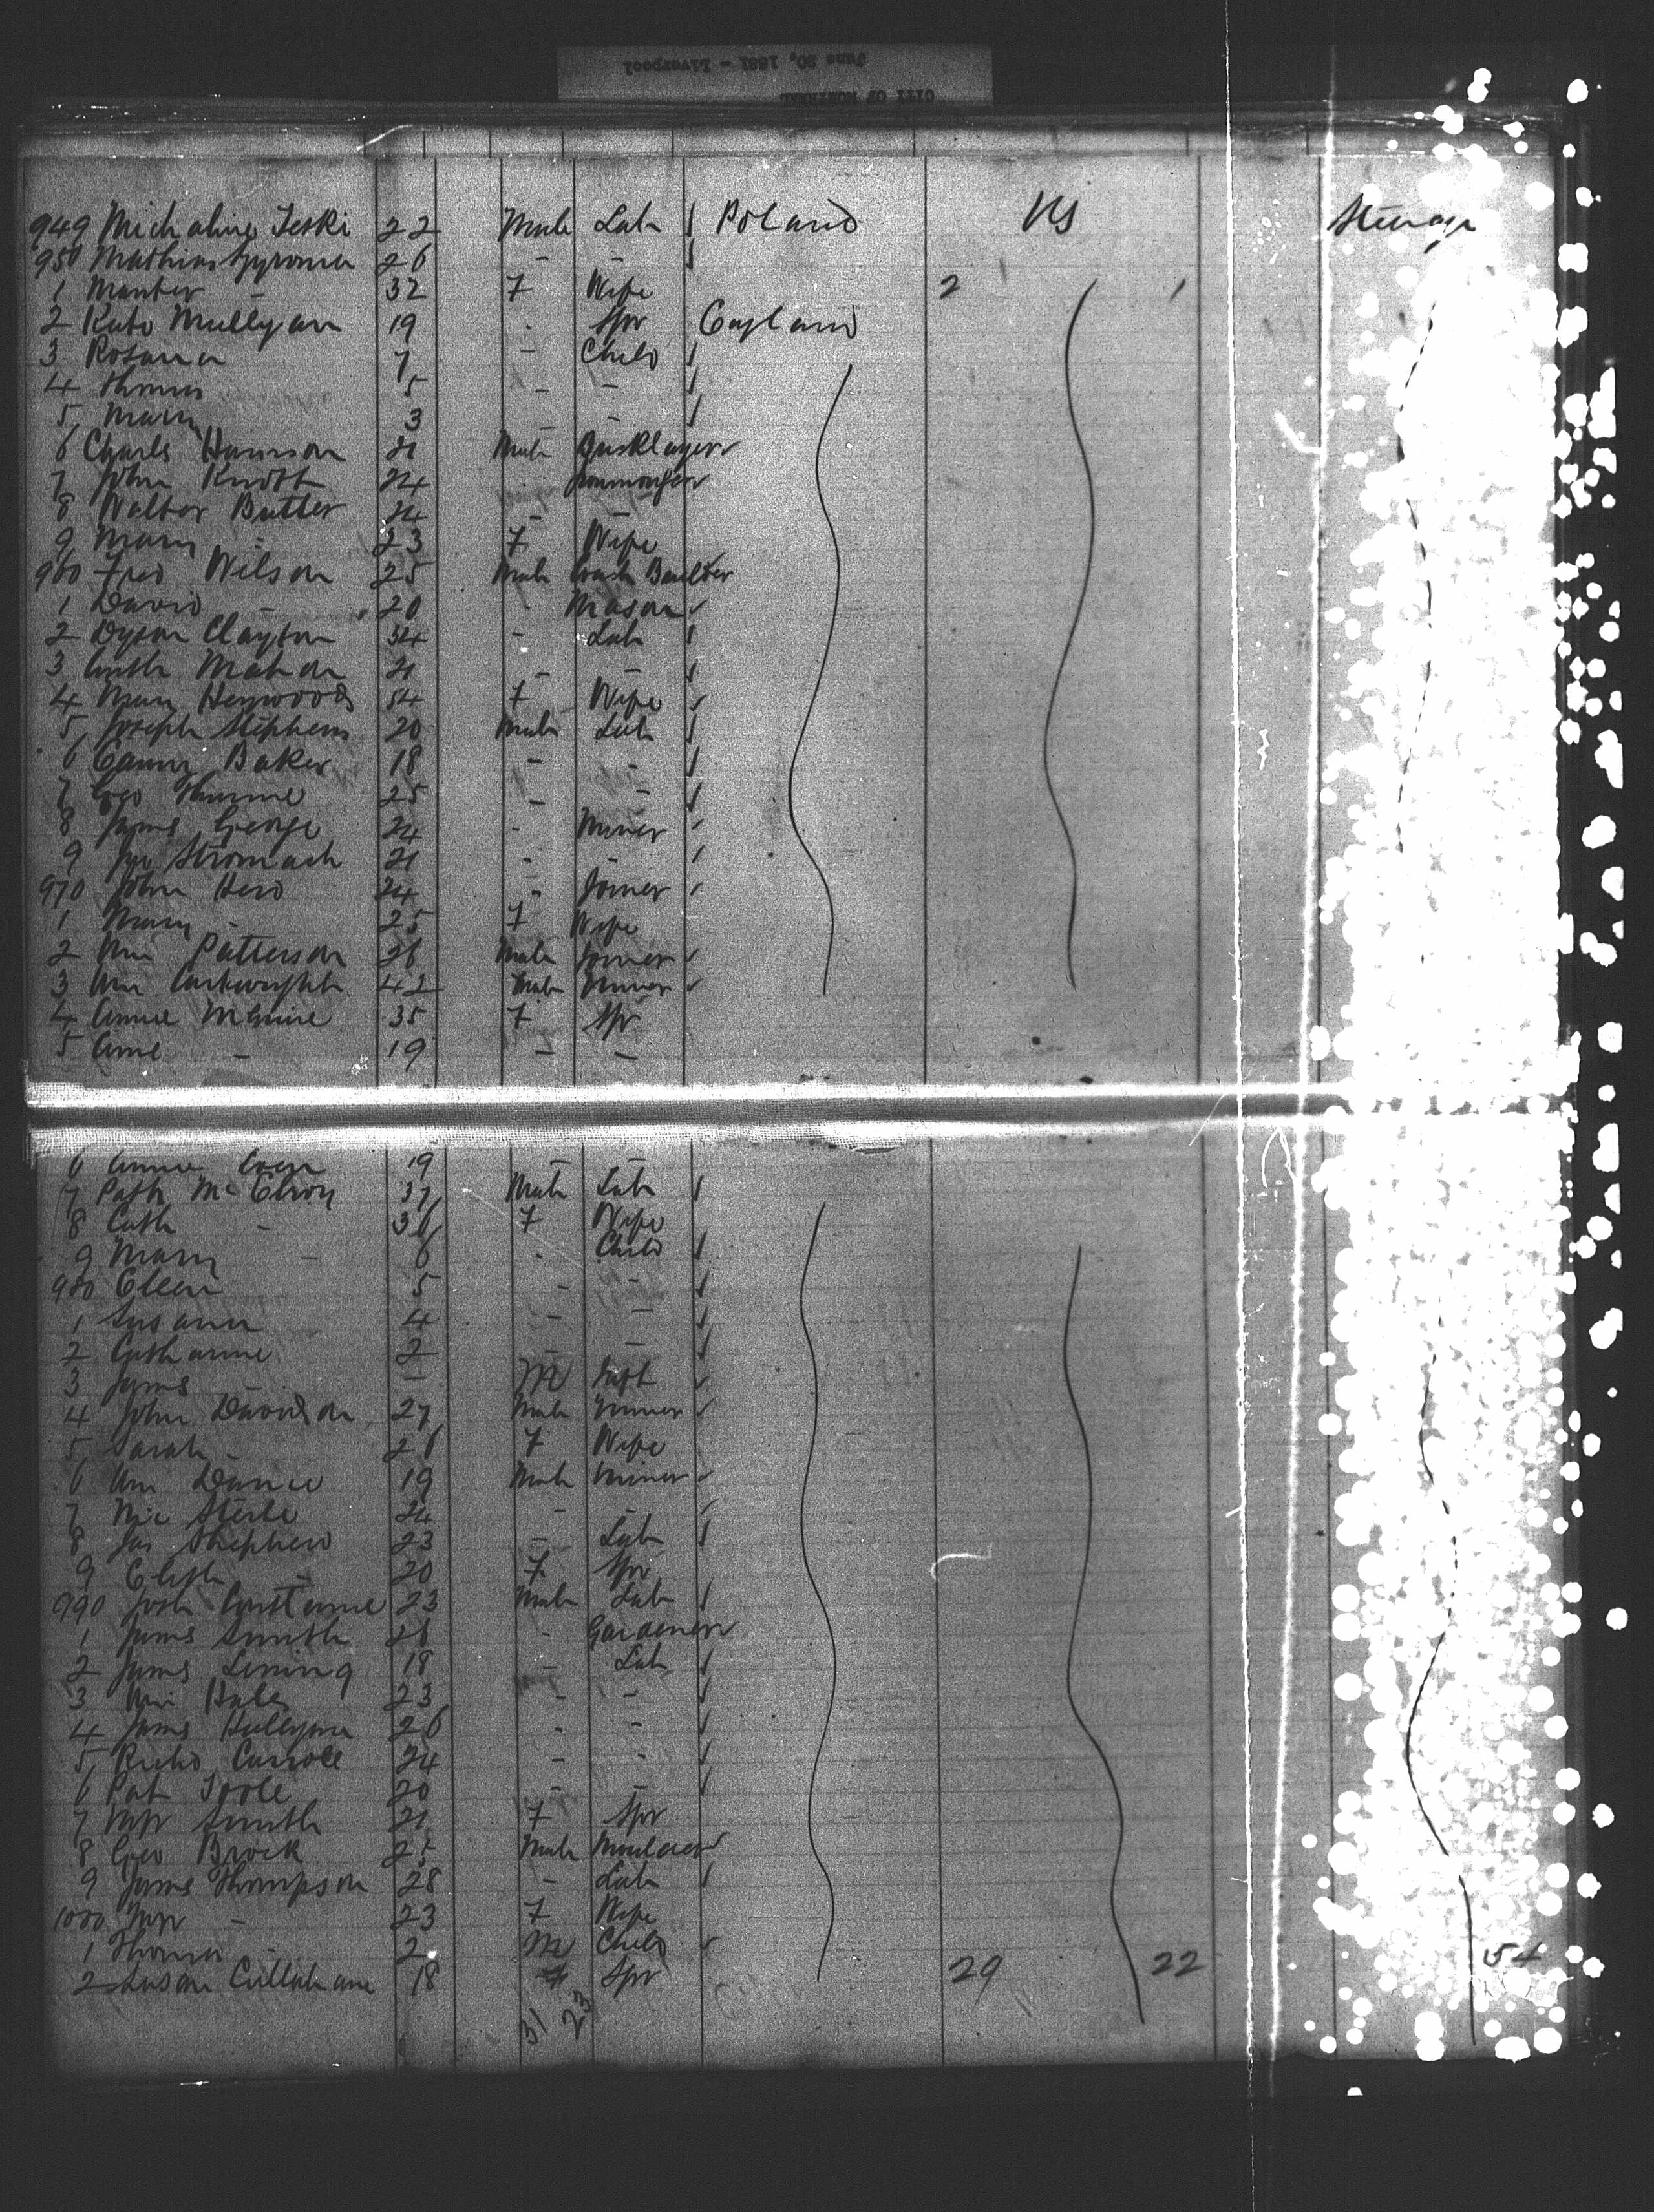 CITY OF MONTREAL
June 20, 1881 - Liverpool
949 Michaline Teski 22 Male Lab Poland US Steerage
950 Mathias 26 - -
1 - 32 F Wife 2 1
2 Kate Mullyan 19 - Spr England
3 Rosanna 7 - Child
4 Thomas 5 - -
5 Mary 3 - -
6 Charls Harrison 21 Male Bricklayer
7 John Knott 24 - Ironmonger
8 Walter Butler 24 - -
9 Mary - 23 F Wife
960 Fred Wilson 25 Male Coach Builder
1 David - 20 - Mason
2 Dyson Clayton 34 - Lab
3 Mahon 21 - -
4 Mary Heywood 54 F Wife
5 Joseph Stephens 20 Male Lab
6 Baker 18 - -
7 Geo 25 - -
8 James George 24 - Miner
9 Stromach 21 - -
970 John Herd 24 - Joiner
1 Mary - 25 F Wife
2 Wm Patterson 26 Male Joiner
3 Wm Cartwright 42 Male Miner
4 Annie McGuire 35 F Spr
5 - 19 - -
6 Annie 19 - -
7 Patk McElroy 37 Male Lab
8 Cath - 36 F Wife
9 Mary - 6 - Child
980 Ellen 5 - -
1 Susann 4 - -
2 Catharine 2 - -
3 James - - M Inft
4 John Davidson 27 Male Miner
5 Sarah - 26 F Wife
6 Wm Dance 19 Male Miner
7 Nic Sterle 24 - -
8 Jas Shepherd 23 - Lab
9 Elizth - 20 F Spr
990 Josh 23 Male Lab
1 James Smith 21 - Gardener
2 James Lening 18 - Lab
3 Wm Hales 23 - -
4 James 26 - -
5 Richd Carroll 24 - -
6 Pat Toole 20 - -
7 Mgr Smith 21 F Spr
8 Geo Brock 25 Male Moulder
9 James Thompson 28 - Lab
1000 Mgr - 23 F Wife
1 Thomas - 2 M Child
2 Susan Cullahane 18 F Spr 29 22 54
31 23